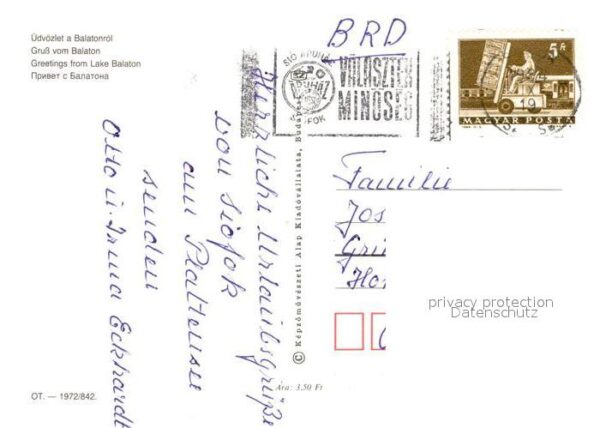 Üdvözlet a Balatonról
Gruß vom Balaton
Greetings from Lake Balaton
Привет с Балатона
BRD
SIÓ ÁRUHÁZ
SIÓFOK
VÁLASZTÉK
MINŐSÉG
5 Ft
19
MAGYAR POSTA
Herzliche Urlaubsgrüße
von Siofok
am Plattensee
senden
Otto u. Irma Eckhardt
© Képzőművészeti Alap Kiadóvállalata, Budapest
Familie
Jos
Grü
Ho
privacy protection
Datenschutz
Ára: 3,50 Ft
OT. — 1972/842.